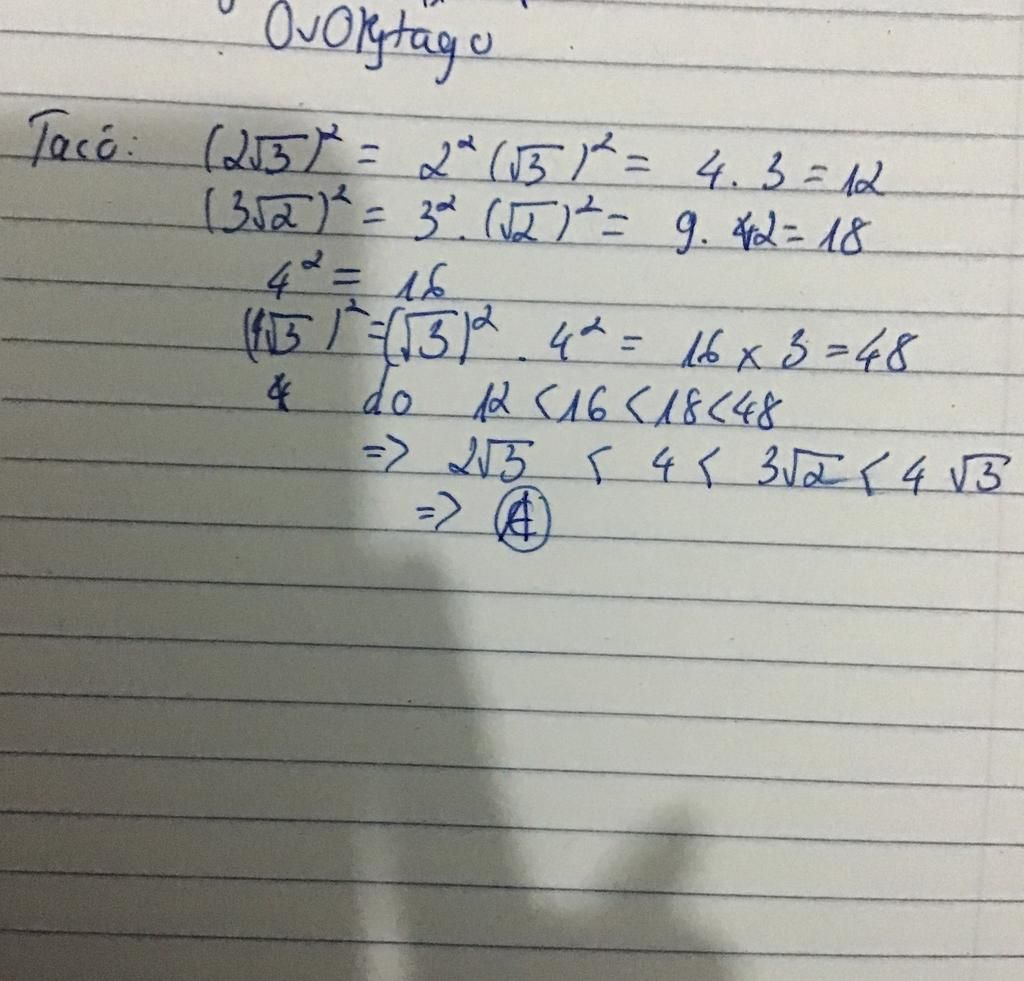 OvOkytago
Ta có: (2√3)² = 2² (√3)² = 4. 3 = 12
(3√2)² = 3². (√2)² = 9. 2 = 18
4² = 16
(4√3)² = (√3)² . 4² = 16 x 3 = 48
do 12 < 16 < 18 < 48
=> 2√3 < 4 < 3√2 < 4√3
=> A